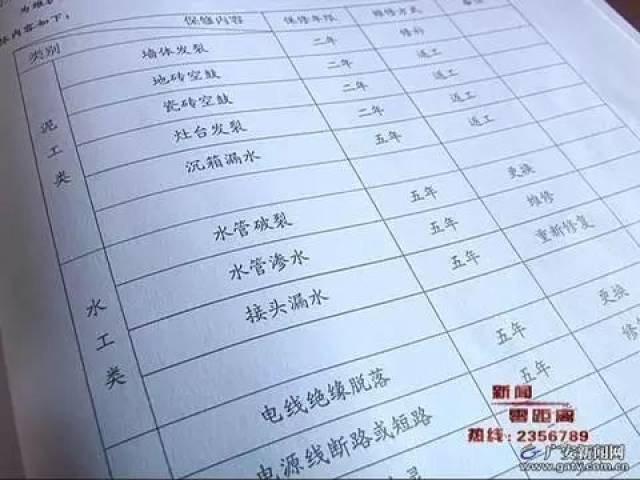 为维
体内容如下：
类别 保修内容 保修年限 维修方式 备注
泥工类
墙体发裂 二年 修补
地砖空鼓 二年 返工
瓷砖空鼓 二年 返工
灶台发裂 二年 返工
沉箱漏水 五年 返工
水工类
水管破裂 五年 更换
水管渗水 五年 维修
接头漏水 五年 重新修复
电线绝缘脱落 五年 更换
电源线断路或短路 五年
新闻
零距离
热线:2356789
广安新闻网
www.gatv.com.cn